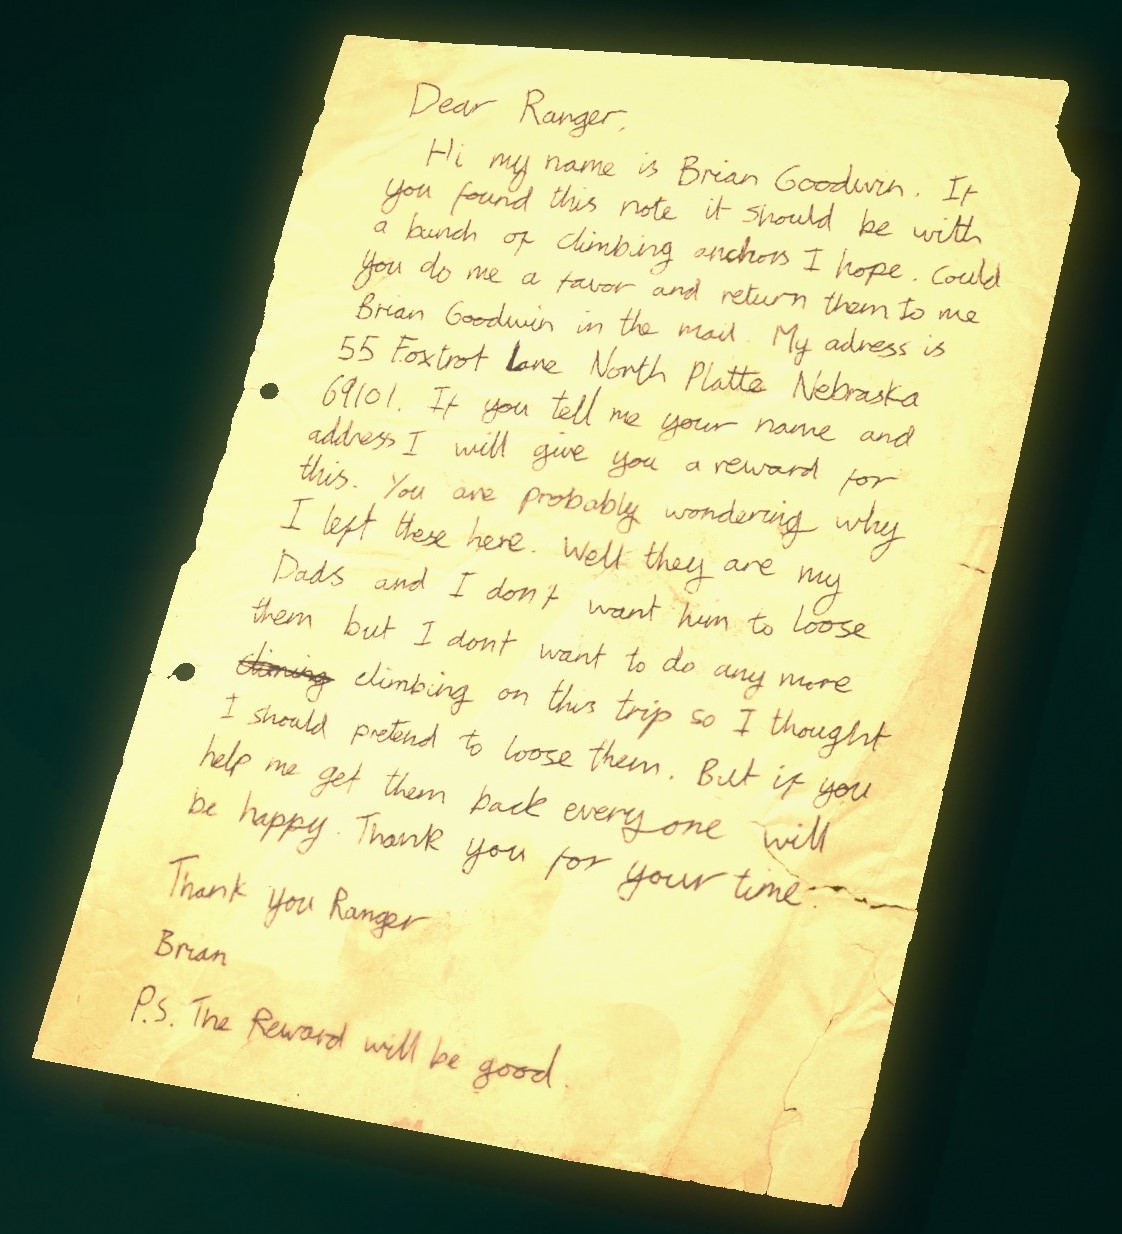 Dear Ranger,
Hi my name is Brian Goodwin. If
you found this note it should be with
a bunch of climbing anchors I hope. Could
you do me a favor and return them to me
Brian Goodwin in the mail. My adress is
55 Foxtrot Lane North Platte Nebraska
69101. If you tell me your name and
address I will give you a reward for
this. You are probably wondering why
I left these here. Well they are my
Dads and I don't want him to loose
them but I dont want to do any more
climing climbing on this trip so I thought
I should pretend to loose them. But if you
help me get them back every one will
be happy. Thank you for your time.
Thank you Ranger
Brian
P.S. The Reward will be good.